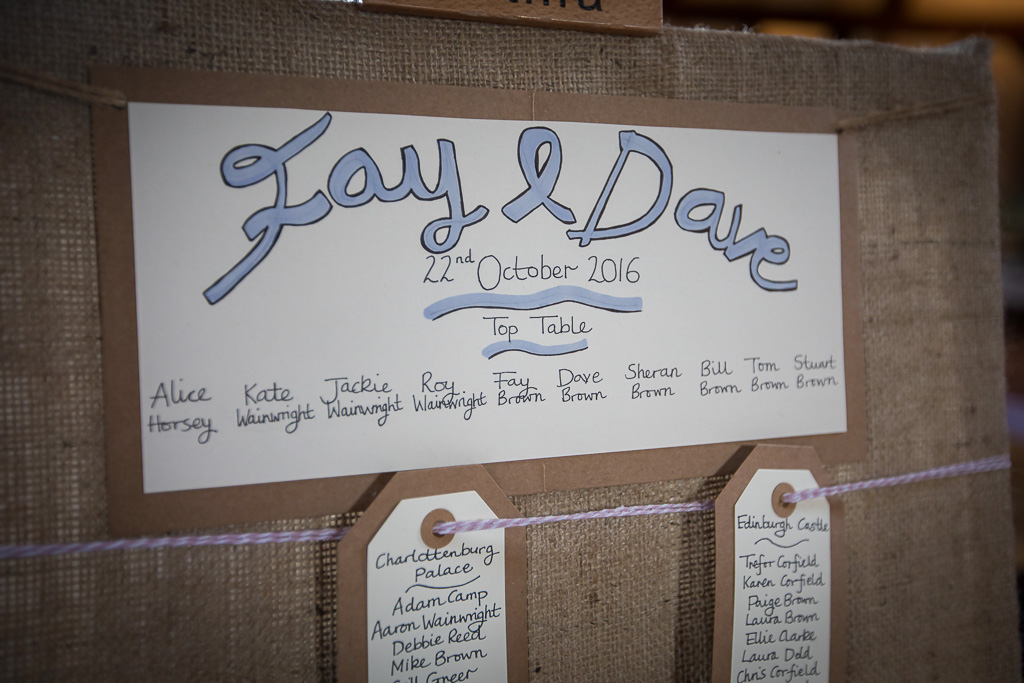 Fay & Dave
22nd October 2016
Top Table
Alice Kate Jackie Roy Fay Dave Sheran Bill Tom Stuart
Horsey Wainwright Wainwright Wainwright Brown Brown Brown Brown Brown Brown
Charlottenburg
Palace
Adam Camp
Aaron Wainwright
Debbie Reed
Mike Brown
Greer
Edinburgh Castle
Trefor Corfield
Karen Corfield
Paige Brown
Laura Brown
Ellie Clarke
Laura Dodd
Chris Corfield